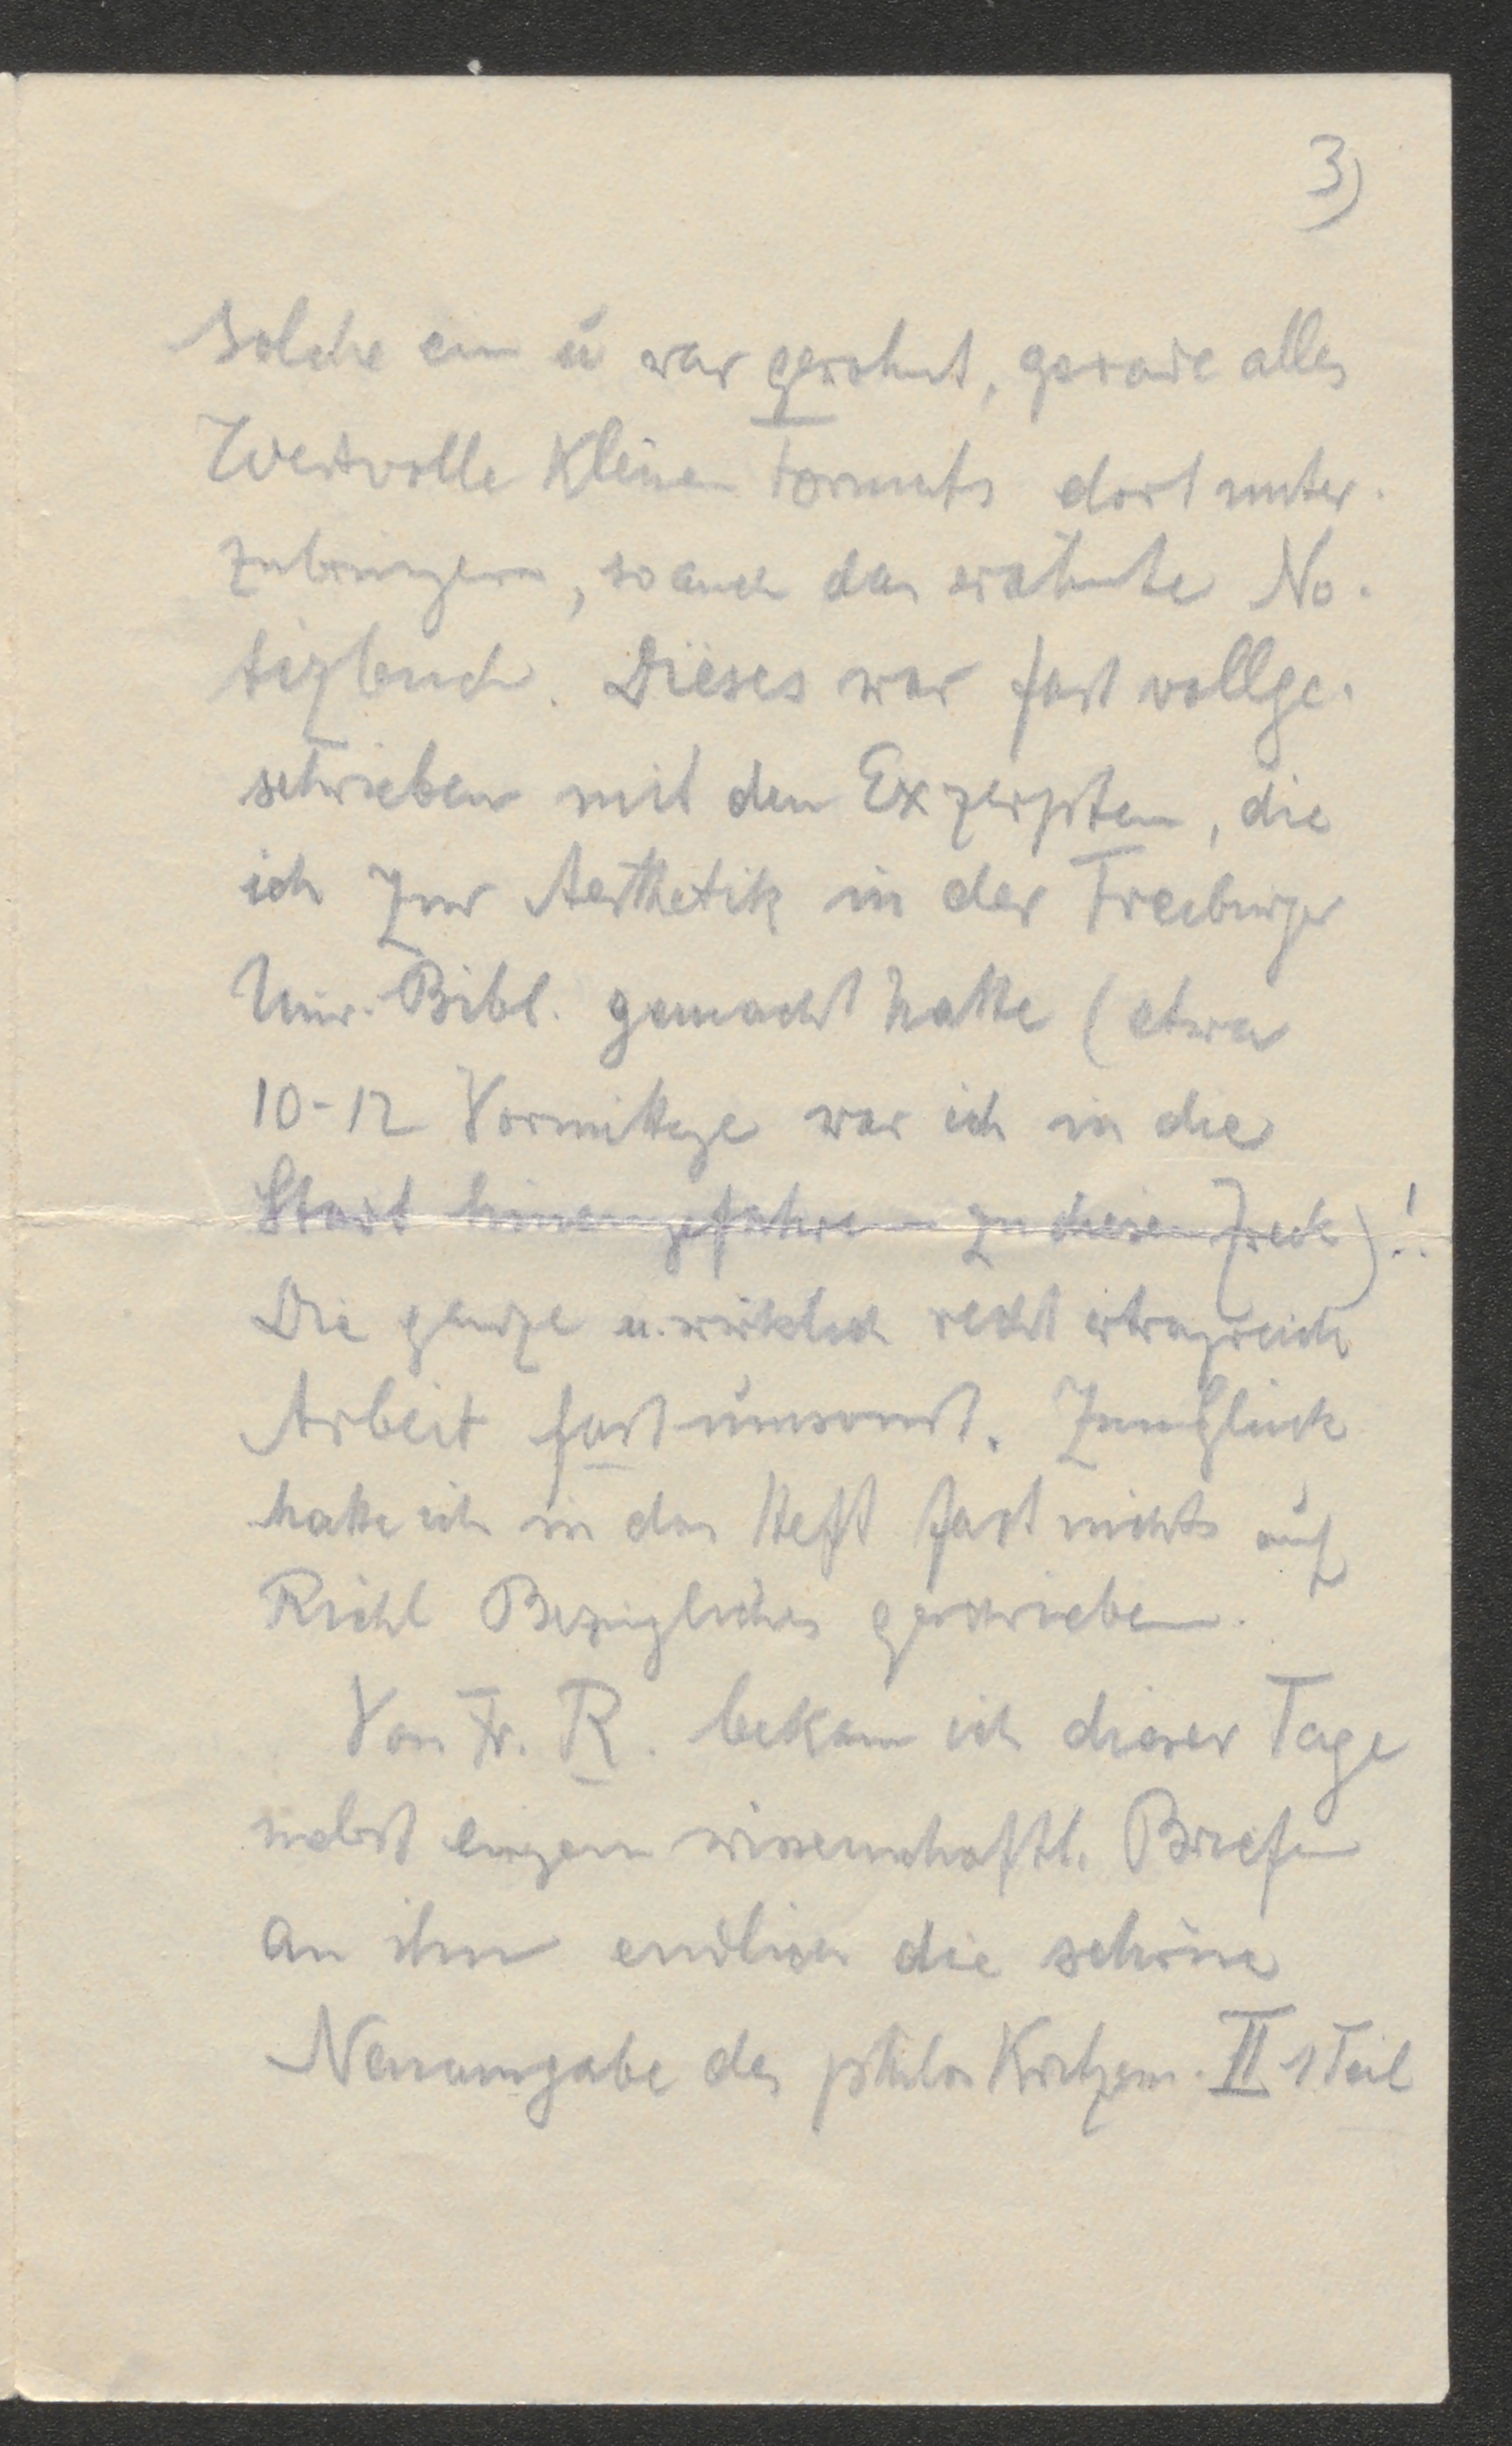 3)
solche ein u war gewohnt, gerade alles
Wertvolle kleinen Formats dort unter-
zubringen, so auch das erwähnte No-
tizbuch. Dieses war fast vollge-
schrieben mit den Exzerpten, die
ich zur Aesthetik in der Freiburger
Univ. Bibl. gemacht hatte (etwa
10-12 Vormittage war ich in die
Stadt hineingefahren zu diesem Zweck)!
Die ganze u. wirklich recht ertragreiche
Arbeit fast umsonst. Zum Glück
hatte ich in das Heft fast nichts auf
Riehl Bezügliches geschrieben.
Von Fr. R. bekam ich dieser Tage
nebst einigen wissenschaftl. Briefen
an ihn endlich die schöne
Neuausgabe des philos Kritizism. II 1 Teil